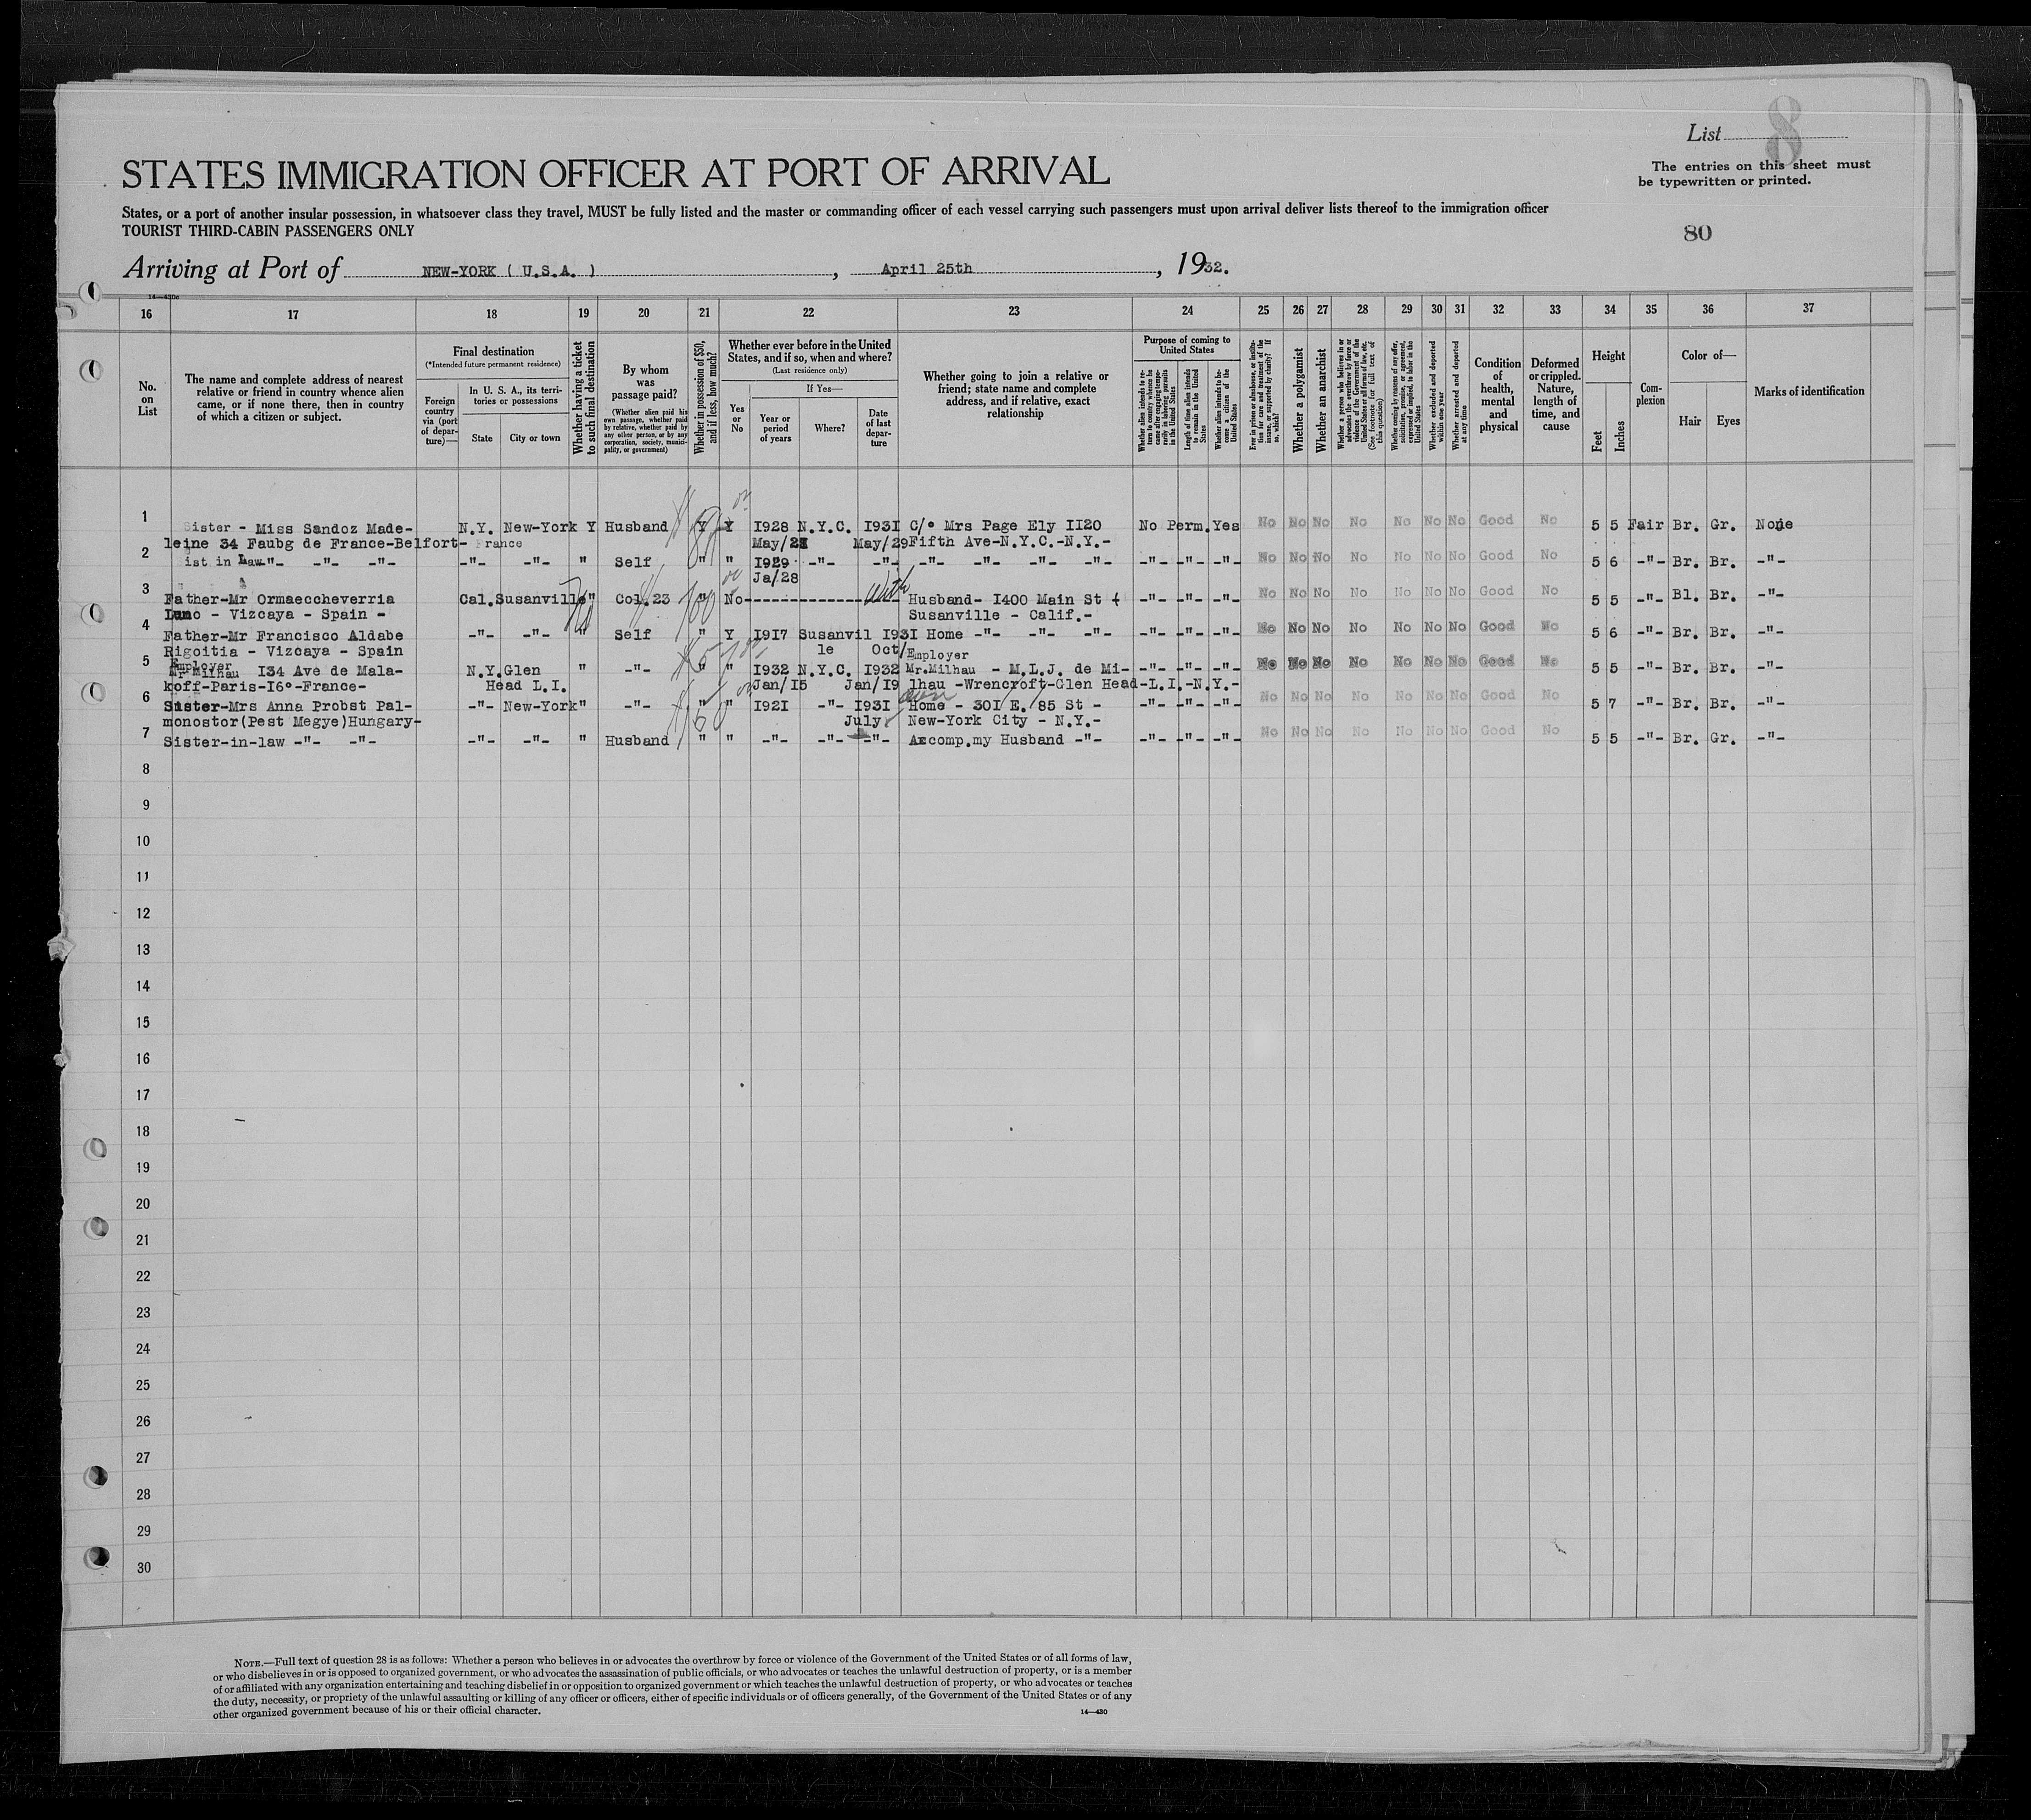 List 8
STATES IMMIGRATION OFFICER AT PORT OF ARRIVAL
The entries on this sheet must
be typewritten or printed.
States, or a port of another insular possession, in whatsoever class they travel, MUST be fully listed and the master or commanding officer of each vessel carrying such passengers must upon arrival deliver lists thereof to the immigration officer
TOURIST THIRD-CABIN PASSENGERS ONLY
80
Arriving at Port of NEW-YORK ( U.S.A. ) , April 25th , 1932.
14—430c
16 17 18 19 20 21 22 23 24 25 26 27 28 29 30 31 32 33 34 35 36 37
No.
on
List
The name and complete address of nearest
relative or friend in country whence alien
came, or if none there, then in country
of which a citizen or subject.
Final destination
(*Intended future permanent residence)
Foreign
country
via (port
of depar-
ture)—
In U. S. A., its terri-
tories or possessions
State
City or town
Whether having a ticket
to such final destination
By whom
was
passage paid?
(Whether alien paid his
own passage, whether paid
by relative, whether paid by
any other person, or by any
corporation, society, munici-
pality, or government)
Whether in possession of $50,
and if less, how much?
Whether ever before in the United
States, and if so, when and where?
(Last residence only)
Yes
or
No
If Yes—
Year or
period
of years
Where?
Date
of last
depar-
ture
Whether going to join a relative or
friend; state name and complete
address, and if relative, exact
relationship
Purpose of coming to
United States
Whether alien intends to re-
turn to country whence he
came after engaging tempo-
rarily in laboring pursuits
in the United States
Length of time alien intends
to remain in the United
States
Whether alien intends to be-
come a citizen of the
United States
Ever in prison or almshouse, or institu-
tion for care and treatment of the
insane, or supported by charity? If
so, which?
Whether a polygamist
Whether an anarchist
Whether a person who believes in or
advocates the overthrow by force or
violence of the Government of the
United States or all forms of law, etc.
(See footnote for full text of
this question)
Whether coming by reasons of any offer,
solicitation, promise, or agreement,
expressed or implied, to labor in the
United States
Whether excluded and deported
within one year
Whether arrested and deported
at any time
Condition
of
health,
mental
and
physical
Deformed
or crippled.
Nature,
length of
time, and
cause
Height
Feet
Inches
Com-
plexion
Color of—
Hair
Eyes
Marks of identification
1 Sister - Miss Sandoz Made- N.Y. New-York Y Husband Y Y 1928 N.Y.C. 1931 C/o Mrs Page Ely 1120 No Perm. Yes No No No No No No No Good No 5 5 Fair Br. Gr. None
leine 34 Faubg de France-Belfort- France May/ May/29 Fifth Ave-N.Y.C.-N.Y.-
2 ist in Law -"- -"- -"- -"- -"- " Self " " 1929 -"- -"- -"- -"- -"- -"- -"- -"- -"- No No No No No No No Good No 5 6 -"- Br. Br. -"-
Ja/28
3 Father-Mr Ormaeccheverria Cal. Susanville " Col.23 100 " No With Husband- 1400 Main St -"- -"- -"- No No No No No No No Good No 5 5 -"- Bl. Br. -"-
- Vizcaya - Spain - Susanville - Calif.-
4 Father-Mr Francisco Aldabe -"- -"- " Self " Y 1917 Susanvil 1931 Home -"- -"- -"- -"- -"- -"- No No No No No No No Good No 5 6 -"- Br. Br. -"-
Rigoitia - Vizcaya - Spain le Oct/
5 Employer Employer
Mr Milhau 134 Ave de Mala- N.Y. Glen " -"- " " 1932 N.Y.C. 1932 Mr.Milhau - M.L.J. de Mi- -"- -"- -"- No No No No No No No Good No 5 5 -"- Br. Br. -"-
koff-Paris-16°-France- Head L.I. Jan/15 Jan/19 lhau -Wrencroft-Glen Head-L.I.-N.Y.-
6 Sister-Mrs Anna Probst Pal- -"- New-York " -"- " " 1921 -"- 1931 Home - 301 E. 85 St - -"- -"- -"- No No No No No No No Good No 5 7 -"- Br. Br. -"-
monostor(Pest Megye)Hungary- July New-York City - N.Y.-
7 Sister-in-law -"- -"- -"- -"- " Husband " " -"- -"- -"- Accomp.my Husband -"- -"- -"- -"- No No No No No No No Good No 5 5 -"- Br. Gr. -"-
8
9
10
11
12
13
14
15
16
17
18
19
20
21
22
23
24
25
26
27
28
29
30
NOTE.—Full text of question 28 is as follows: Whether a person who believes in or advocates the overthrow by force or violence of the Government of the United States or of all forms of law,
or who disbelieves in or is opposed to organized government, or who advocates the assassination of public officials, or who advocates or teaches the unlawful destruction of property, or is a member
of or affiliated with any organization entertaining and teaching disbelief in or opposition to organized government or which teaches the unlawful destruction of property, or who advocates or teaches
the duty, necessity, or propriety of the unlawful assaulting or killing of any officer or officers, either of specific individuals or of officers generally, of the Government of the United States or of any
other organized government because of his or their official character.
14—430